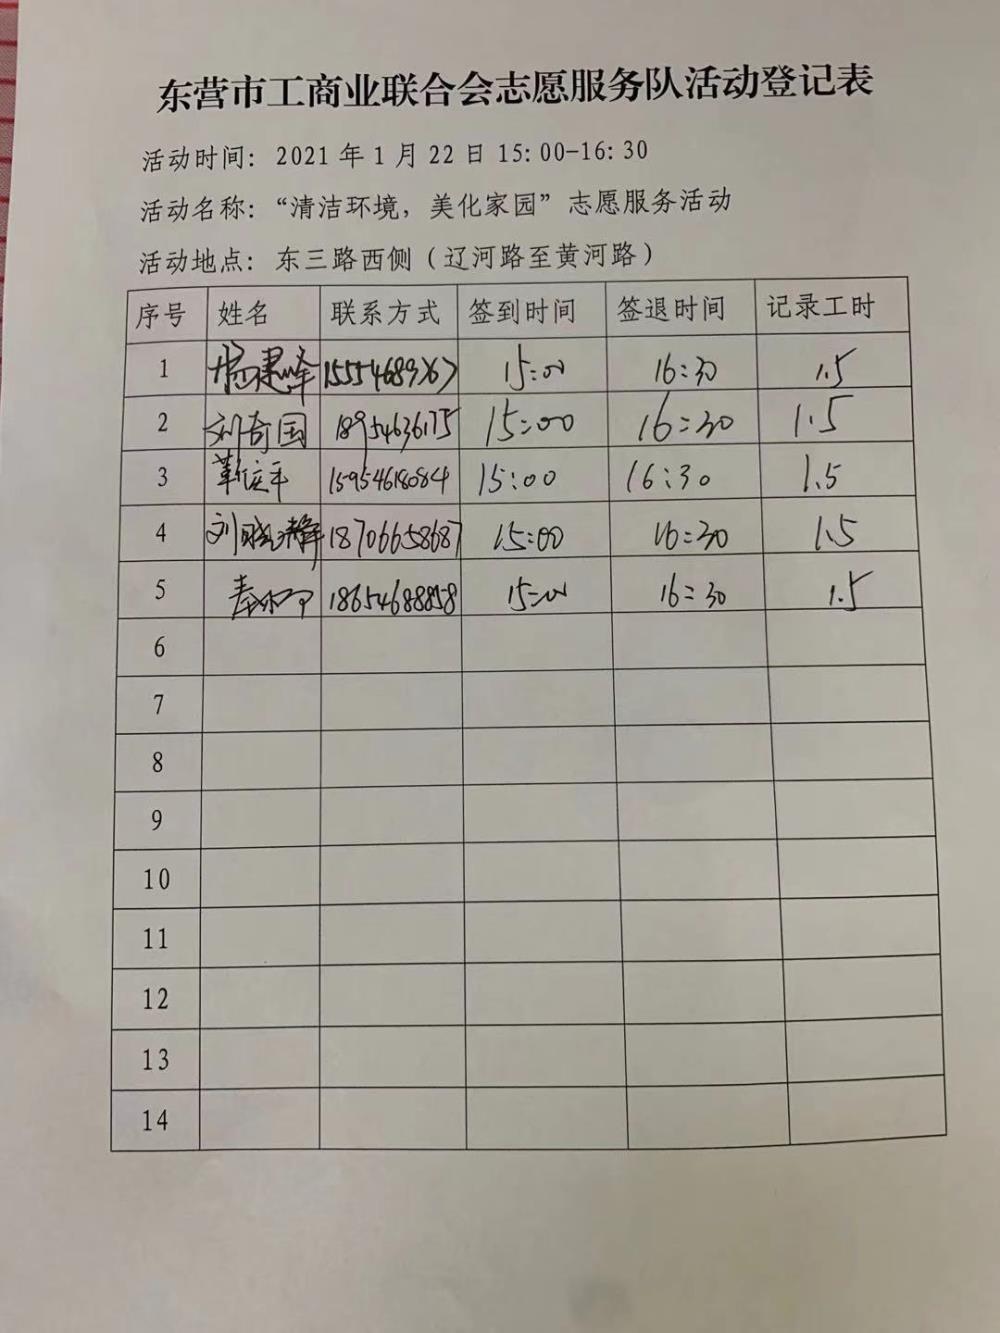 东营市工商业联合会志愿服务队活动登记表
活动时间: 2021 年 1 月 22 日 15: 00-16: 30
活动名称: “清洁环境, 美化家园” 志愿服务活动
活动地点: 东三路西侧 ( 辽河路至黄河路 )
序号 姓名 联系方式 签到时间 签退时间 记录工时
1 杨建峰 15:00 16:30 1.5
2 刘奇国 18954636175 15:00 16:30 1.5
3 15954618084 15:00 16:30 1.5
4 刘晓静 18706658687 15:00 16:30 1.5
5 18654688858 15:00 16:30 1.5
6
7
8
9
10
11
12
13
14